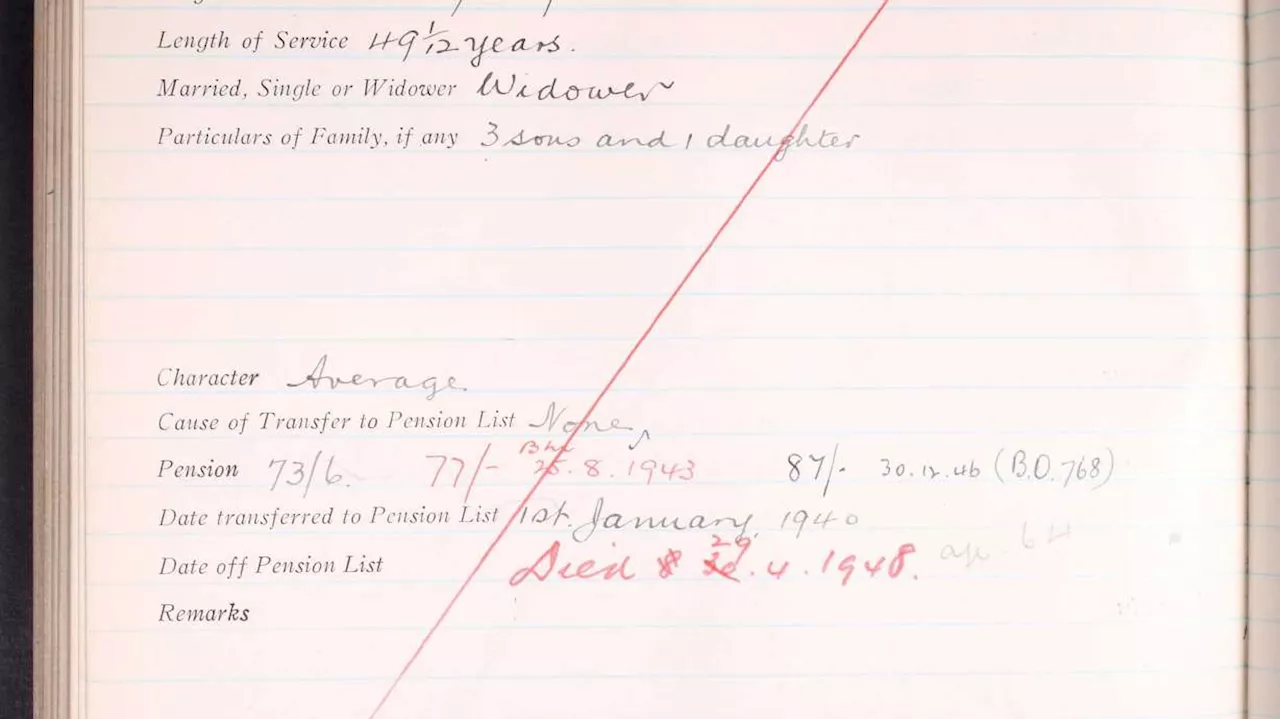 Length of Service 49 1/12 years.
Married, Single or Widower Widower
Particulars of Family, if any 3 sons and 1 daughter
Character Average
Cause of Transfer to Pension List None
Pension 73/6. 77/- .8.1943 87/- 30.12.46 (B.O. 768)
Date transferred to Pension List 1st. January, 1940
29
Date off Pension List Died .4.1948. 64
Remarks